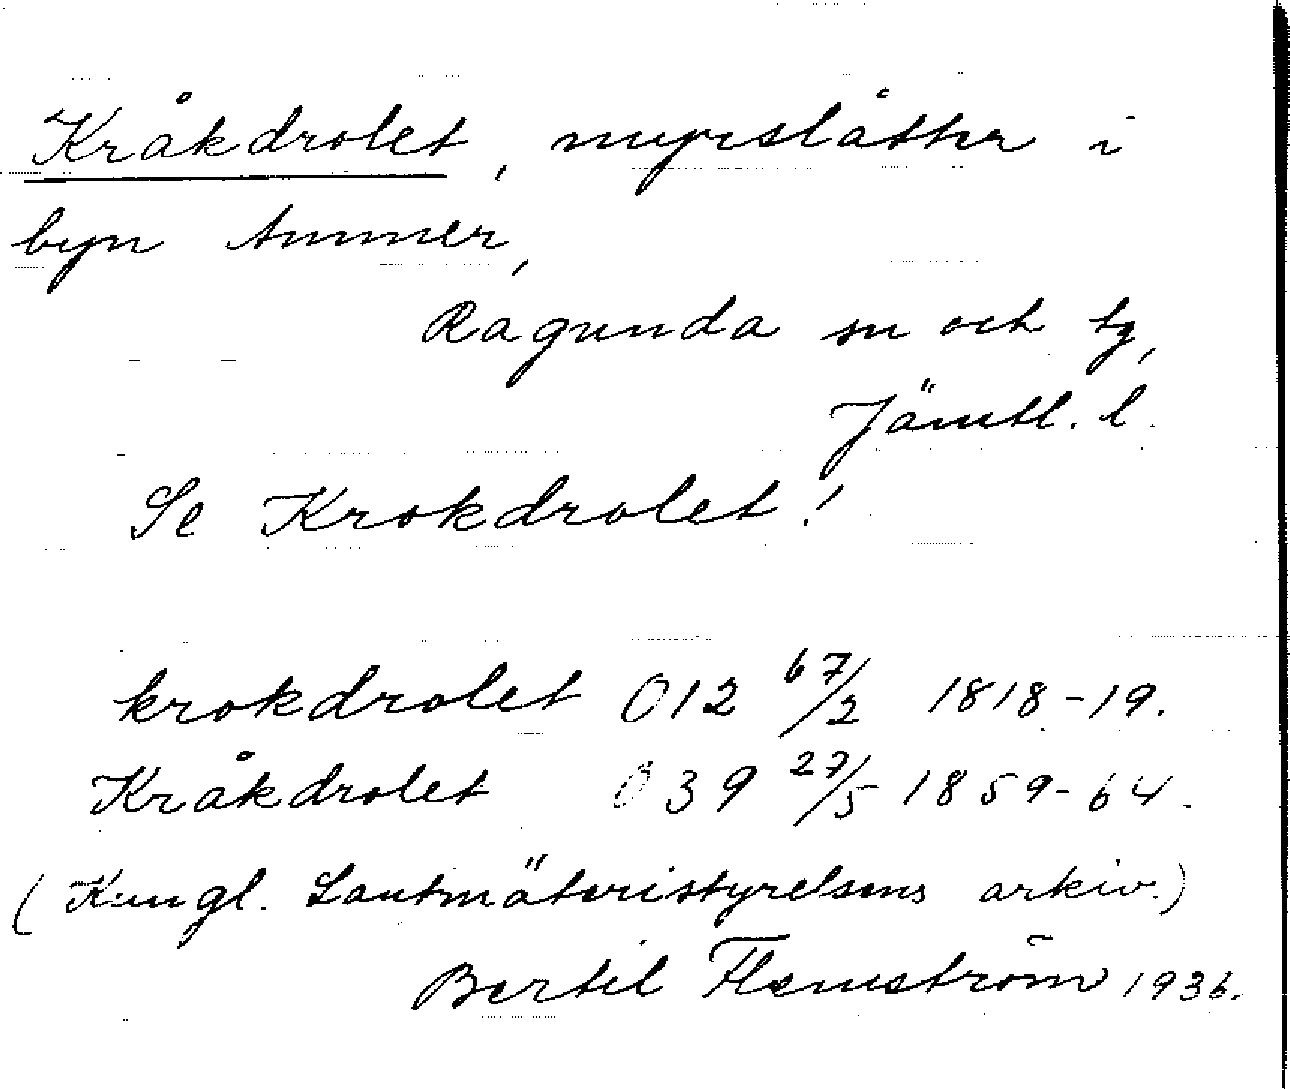 Kråkdrolet, myrslåtter i
byn Ammer,
Ragunda sn och tg,
Jämtl. l.
Se Krokdrolet!
krokdrolet O12 67/2 1818-19.
Kråkdrolet O39 27/5 1859-64.
(Kungl. Lantmäteristyrelsens arkiv.)
Bertil Flemström 1936.